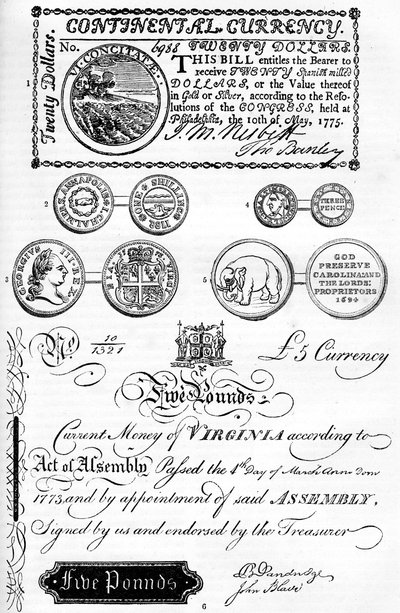 CONTINENTAL CURRENCY.
Twenty Dollars.
No. 6988 TWENTY DOLLARS.
VI CONCITATÆ.
THIS BILL entitles the Bearer to
receive TWENTY Spanish milled
DOLLARS, or the Value thereof
in Gold or Silver, according to the Reso-
lutions of the CONGRESS, held at
Philadelphia, the 10th of May, 1775.
J. M. Nesbitt
1
2
I. CHALMERS. ANNAPOLIS.
ONE SHILLING
4
THREE
PENCE
3
GEORGIVS III. REX.
5
GOD
PRESERVE
CAROLINA: AND
THE LORDS:
PROPRIETORS
1694
No. 10
1321
£5 Currency
Five Pounds
Current Money of VIRGINIA according to
Act of Assembly Passed the 4th Day of March Anno Dom
1773, and by appointment of said ASSEMBLY.
Signed by us and endorsed by the Treasurer
Five Pounds
John Blair
6